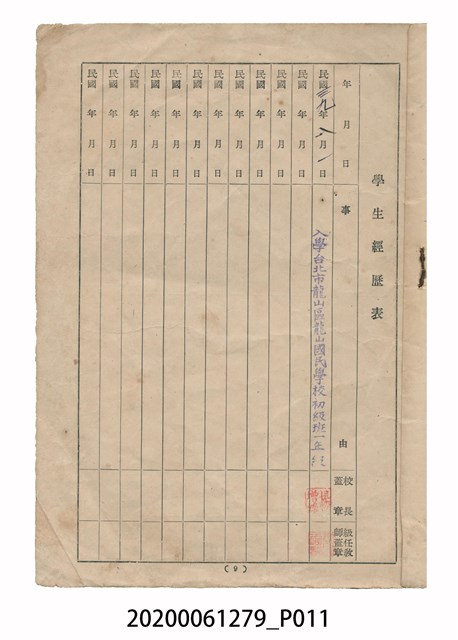 學生經歷表
年 月 日 事 由 校長蓋章 級任教師蓋章
民國三九年八月一日 入學台北市龍山區龍山國民學校初級班一年
民國 年 月 日
民國 年 月 日
民國 年 月 日
民國 年 月 日
民國 年 月 日
民國 年 月 日
民國 年 月 日
民國 年 月 日
民國 年 月 日
民國 年 月 日
(9)
20200061279_P011